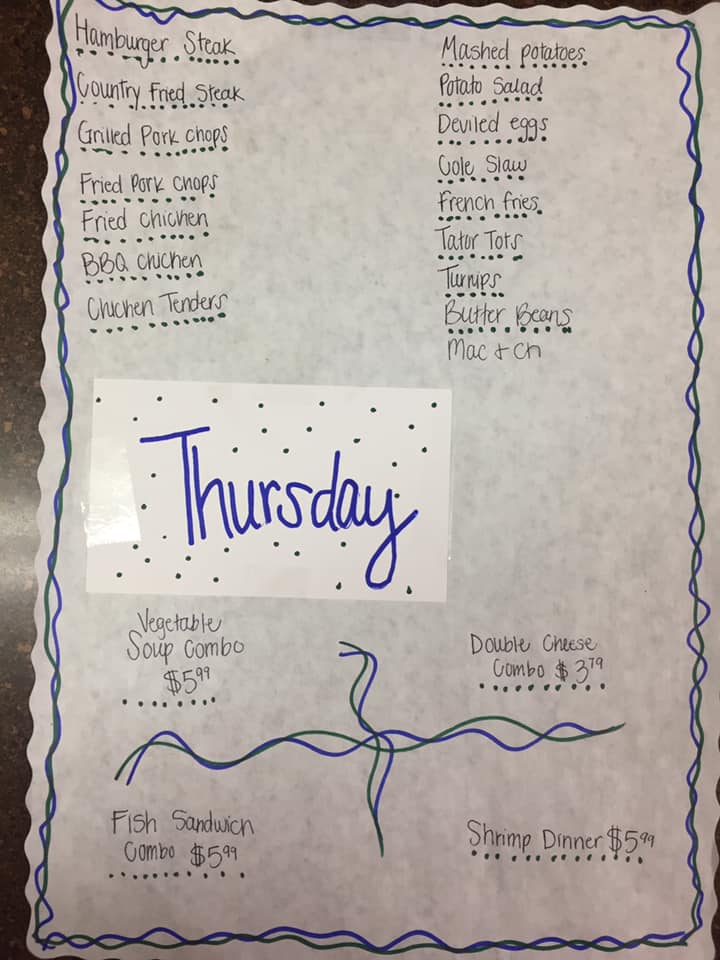 Hamburger Steak
Country Fried Steak
Grilled Pork chops
Fried Pork chops
Fried chichen
BBQ chichen
Chichen Tenders
Mashed potatoes
Potato Salad
Deviled eggs
Cole Slaw
French fries
Tator Tots
Turnips
Butter Beans
Mac + Ch
Thursday
Vegetable
Soup Combo
$5.99
Double Cheese
Combo $3.79
Fish Sandwich
Combo $5.99
Shrimp Dinner $5.99